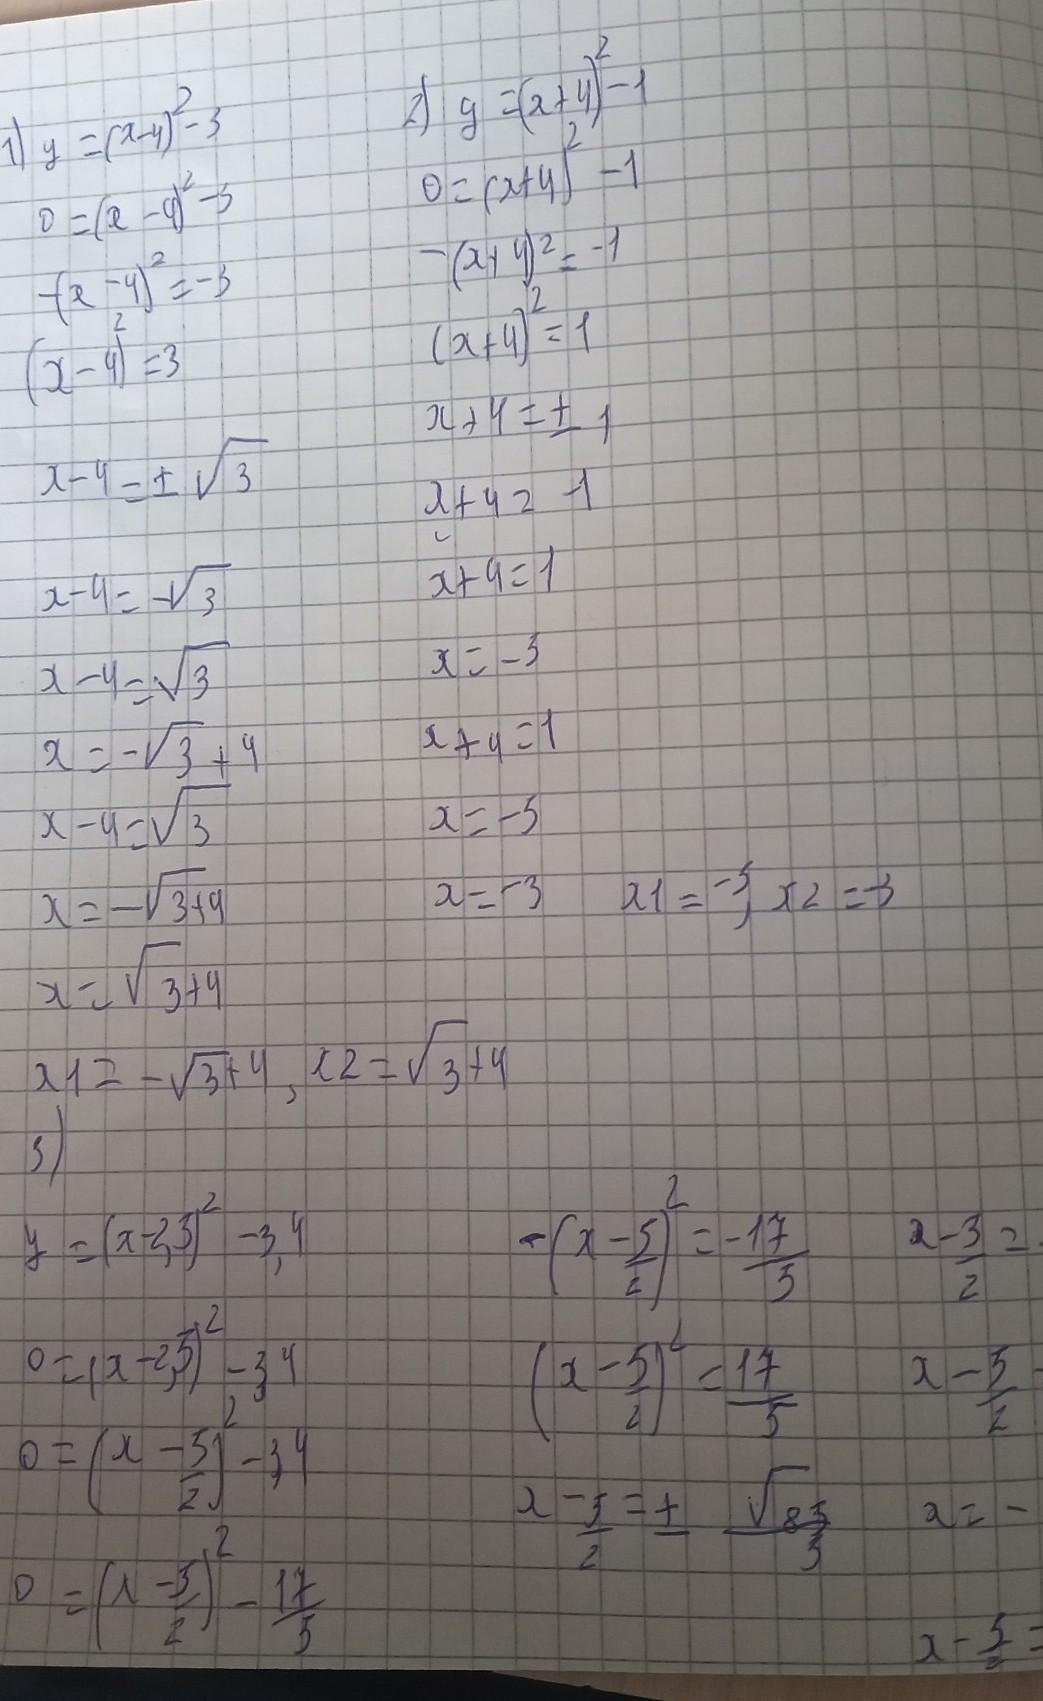 1) y = (x-4)² - 3
0 = (x - 4)² - 3
-(x - 4)² = -3
(x - 4)² = 3
x - 4 = ± √3
x - 4 = -√3
x - 4 = √3
x = -√3 + 4
x - 4 = √3
x = -√3 + 4
x = √3 + 4
x1 = -√3 + 4, x2 = √3 + 4
2) y = (x+4)² - 1
0 = (x+4)² - 1
-(x+4)² = -1
(x+4)² = 1
x + 4 = ± 1
x + 4 = -1
x + 4 = 1
x = -3
x + 4 = 1
x = -5
x = -3 x1 = -5, x2 = -3
3)
y = (x-2,5)² - 3,4
0 = (x-2,5)² - 3,4
0 = (x - 5/2)² - 3,4
0 = (x - 5/2)² - 17/5
-(x - 5/2)² = -17/5
(x - 5/2)² = 17/5
x - 5/2 = ± √85/5
x - 5/2 =
x - 5/2
x = -
x - 5/2 =